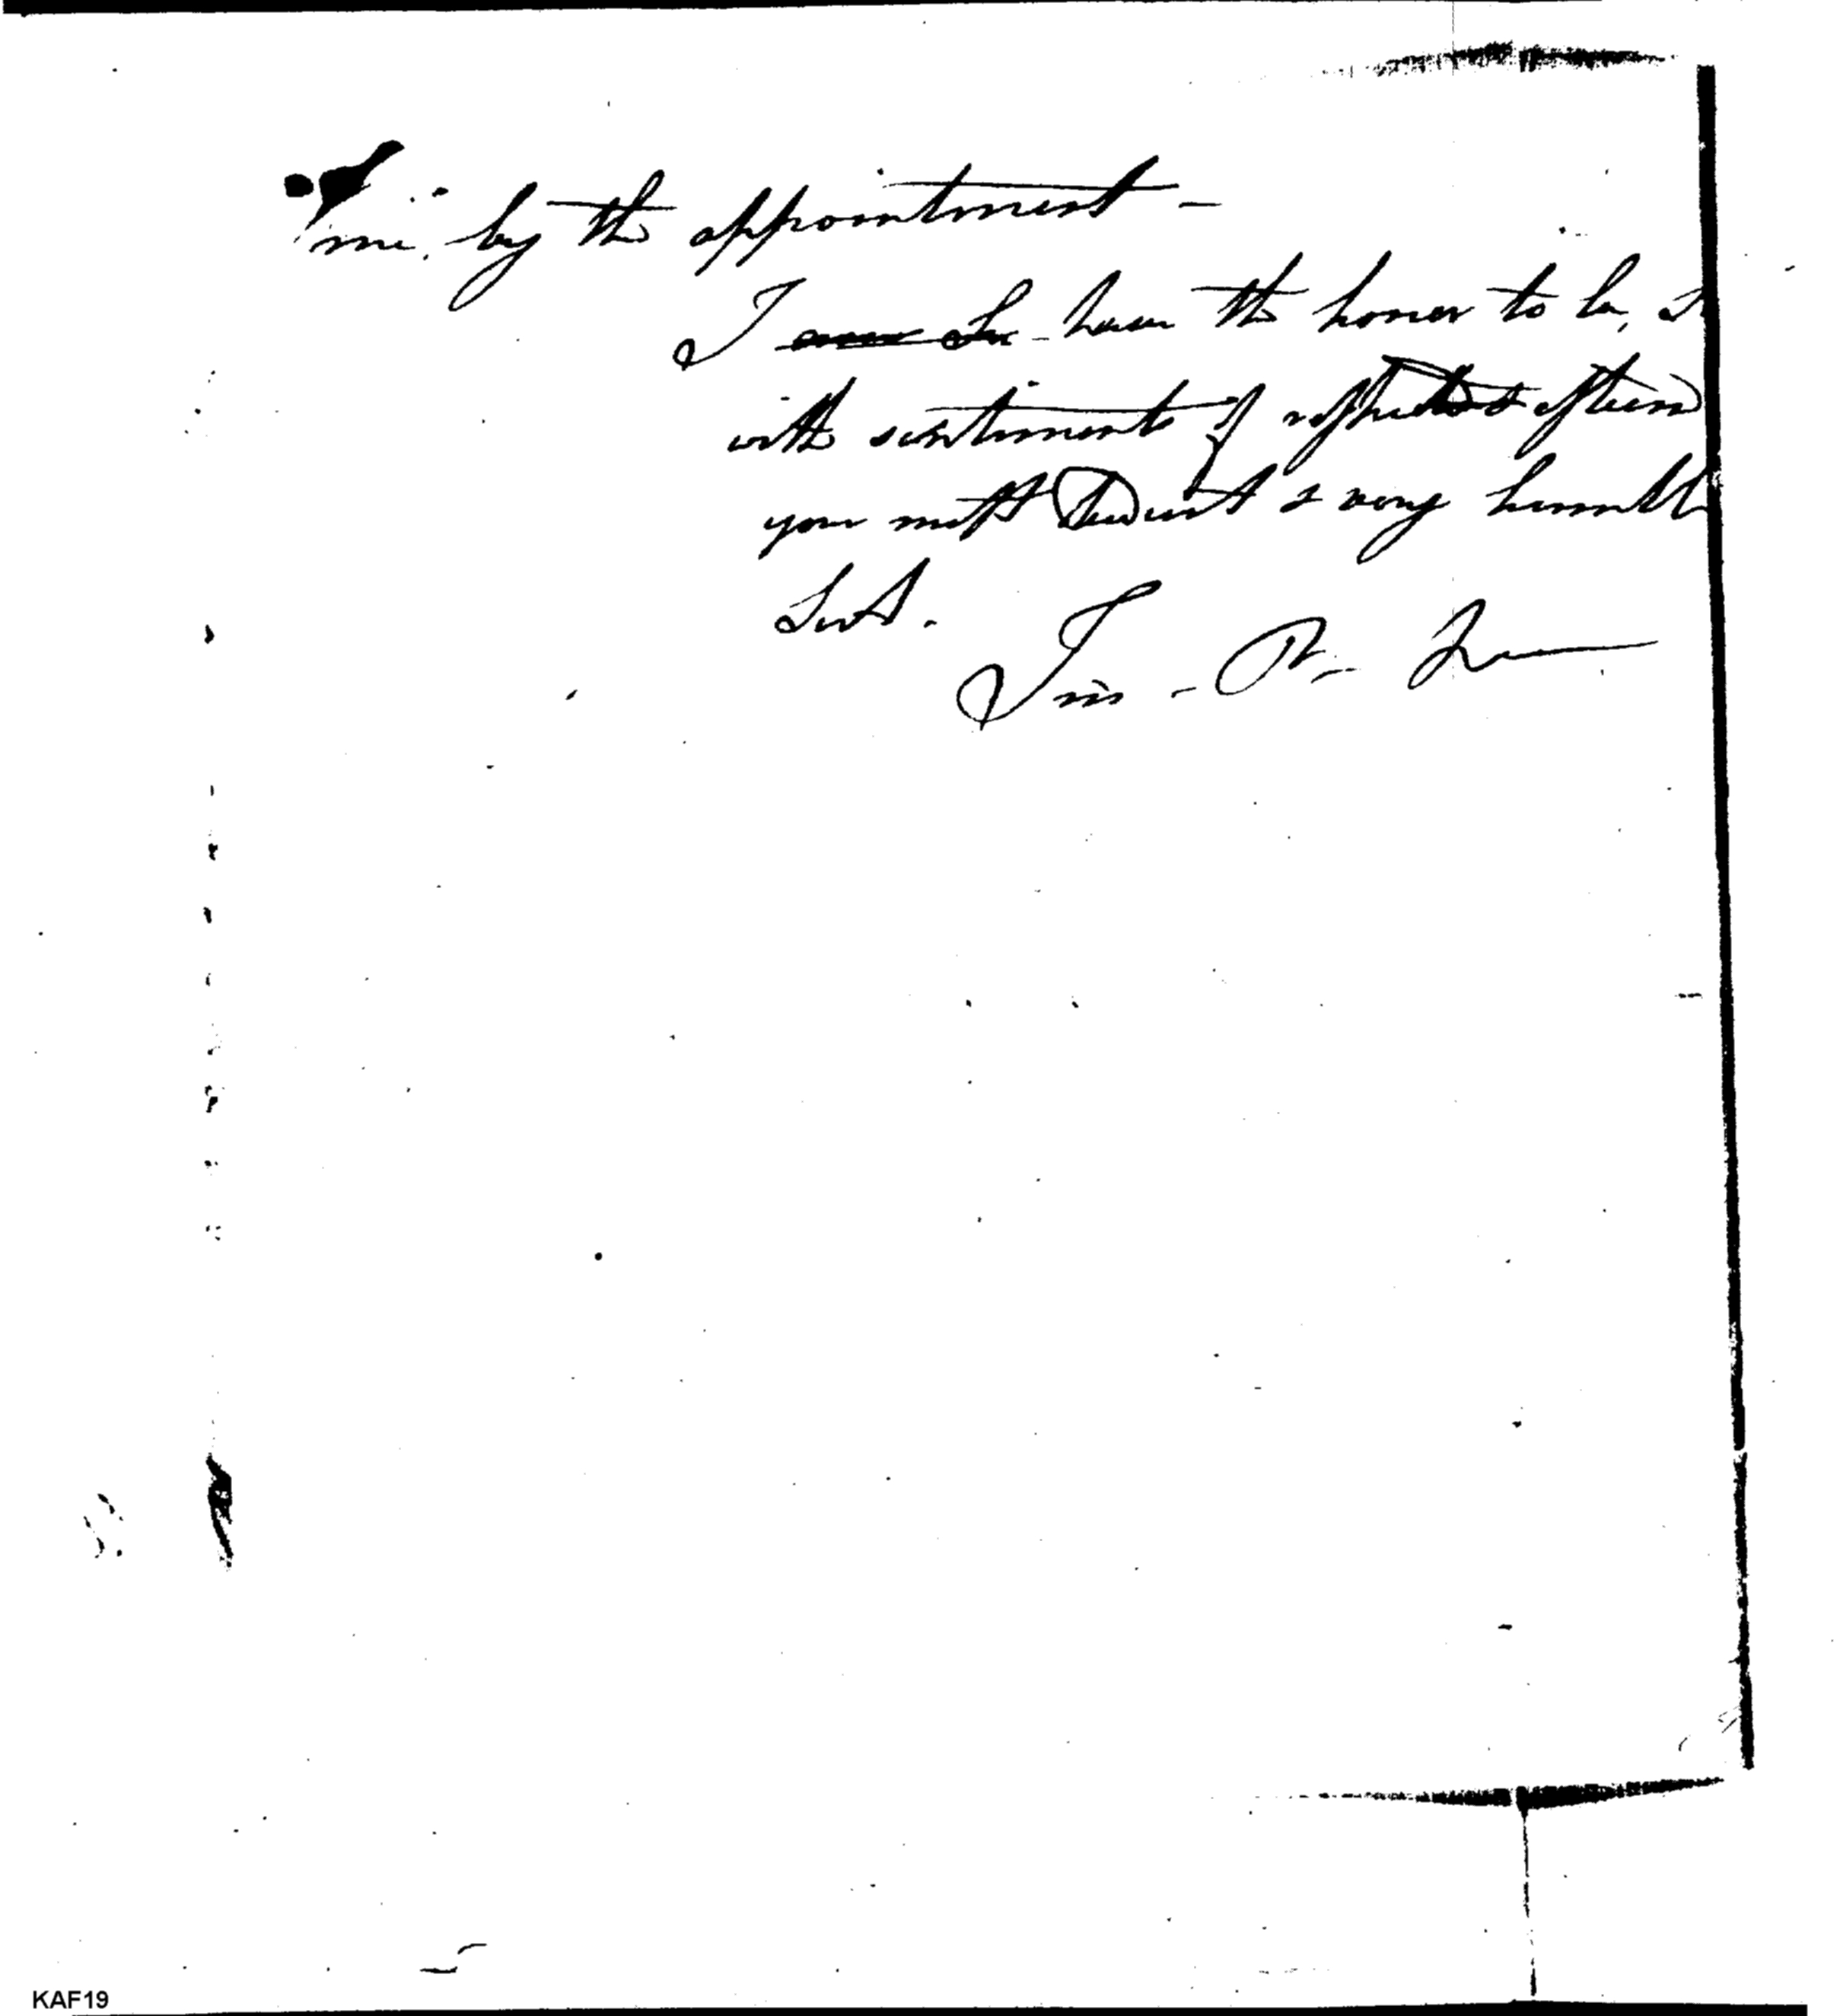 me, by the appointment —
I have the honor to be, S
with sentiments of respect & esteem
your most Obedient & very humble
Servt.
KAF19